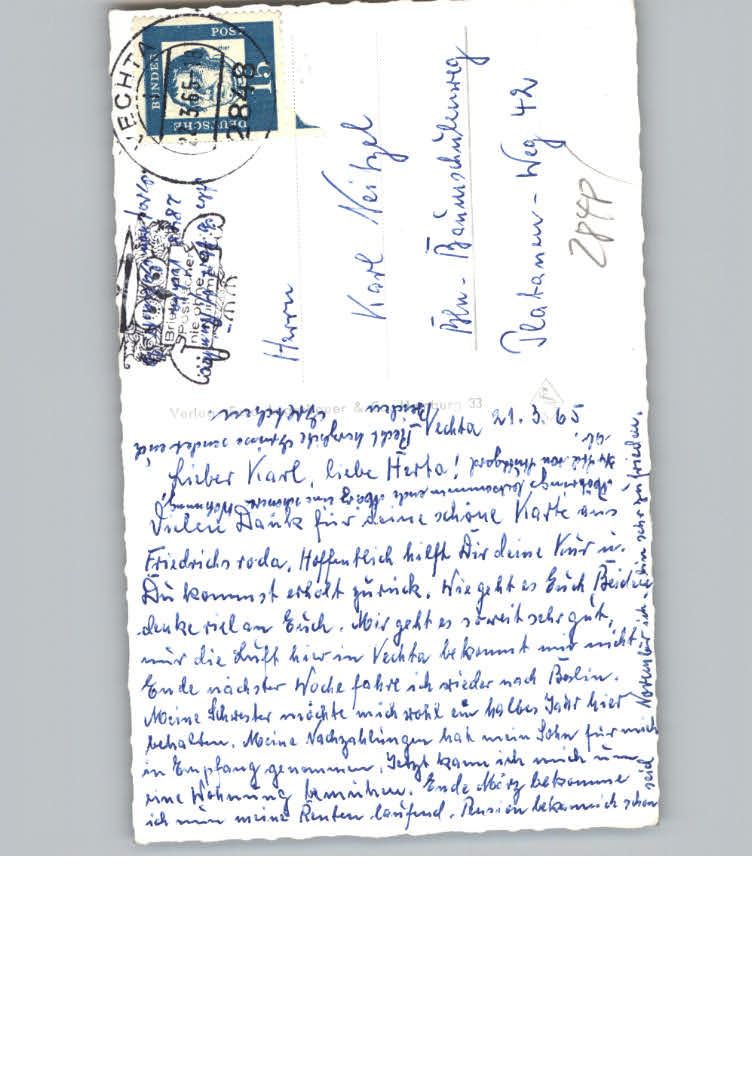 Vechta 21.3.65
Lieber Karl, liebe Herta!
Vielen Dank für deine schöne Karte aus
Friedrichsroda. Hoffentlich hilft Dir deine Kur u.
Du kommst erholt zurück. Wie geht es Euch Beiden
denke viel an Euch. Mir geht es soweit sehr gut,
nur die Luft hier in Vechta bekommt mir nicht
Ende nächster Woche fahre ich wieder nach Berlin.
Meine Schwester möchte mich wohl ein halbes Jahr hier
behalten. Meine Nachzahlungen hat mein Sohn für mich
in Empfang genommen. Jetzt kann ich mich um
eine Wohnung bemühen. Ende März bekomme
ich nun meine Renten laufend. Pension bekam ich schon
seid November ich bin sehr zufrieden.
Recht herzliche Grüsse sendet euch
Beiden
Gretchen
Herrn
Karl Neitzel
Bln - Baumschulenweg
Platanen - Weg 42
284P
VECHTA
2848
DEUTSCHE
BUNDES
POST
15
Briefe
Postfächer
Verlag
Hamburg 33